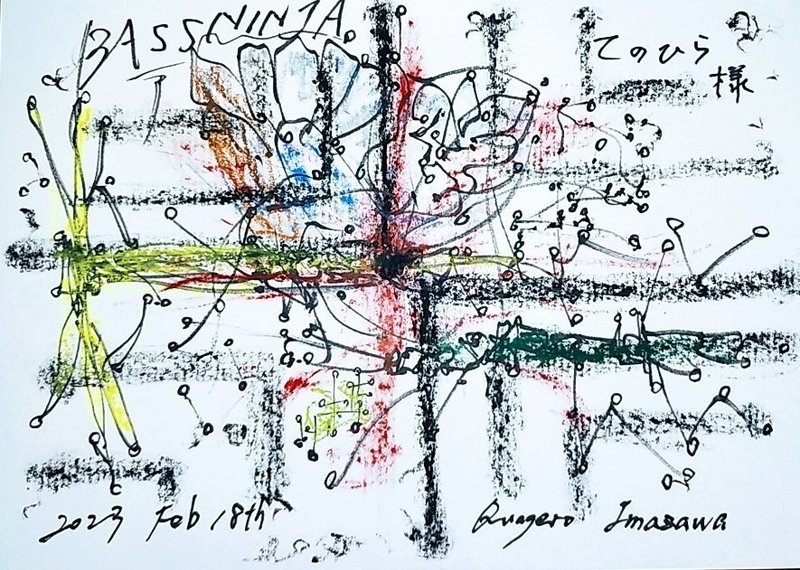 BASSNINJA
てのひら
様
2023 Feb 18th
Ruagero Imasawa